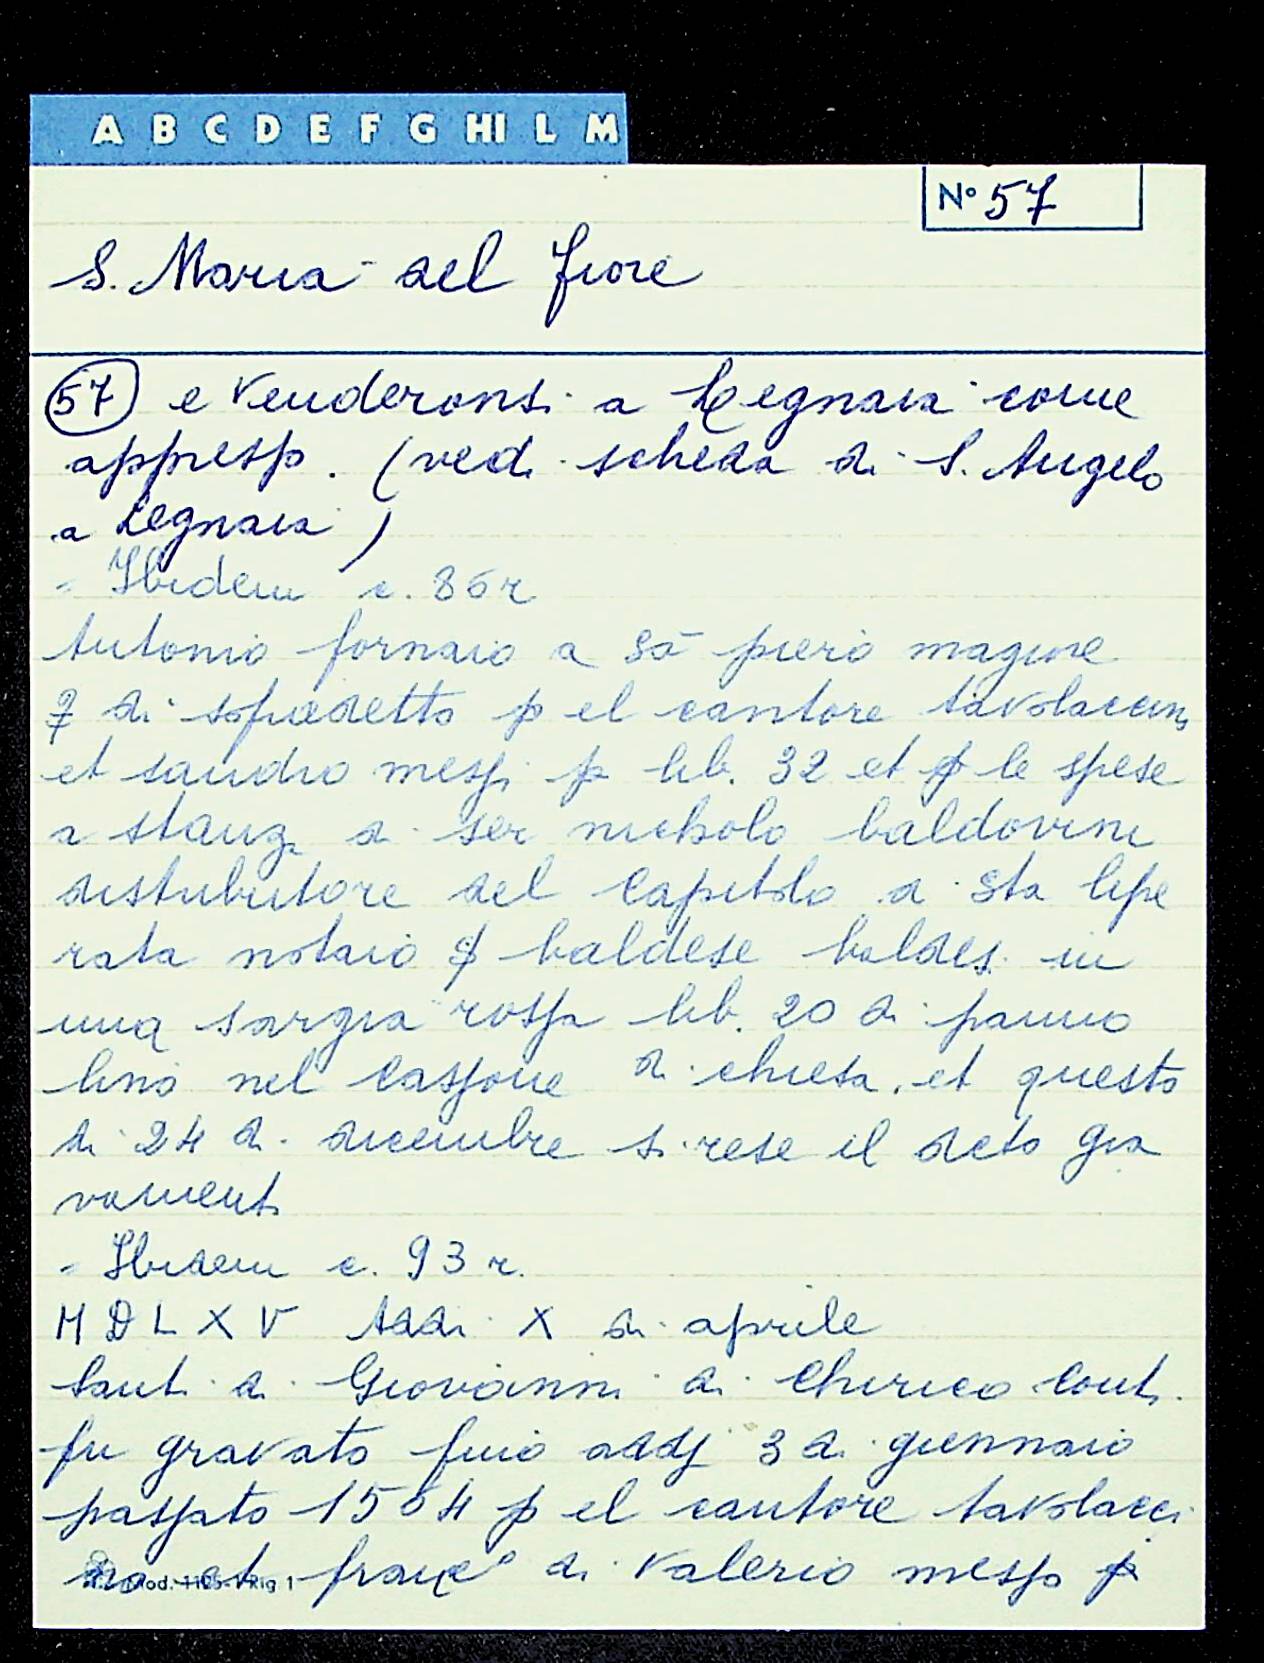 A B C D E F G HI L M
Nº 57
S. Maria del fiore
57 e venderonsi a Legnaia come
appresso. (vedi scheda di S. Angelo
a Legnaia)
= Ibidem c. 86 r
Antonio fornaio a Sā piero magiore
di sopradetto p el cantore tavolaccin,
et sandro messi p lib. 32 et p le spese
a stanz. di ser nicholo baldovini
distributore del Capitolo di Sta lipe
rata notaio baldese baldesi in
una sargia rossa lib. 20 di panno
lino nel cassone di chiesa, et questo
di 24 di dicembre si rese il deto gra
vamento
= Ibidem c. 93 r.
M D L X V Addi X di aprile
Santi di Giovanni di Chirico Conti
fu gravato fino addj 3 di giennaio
passato 1564 p el cantore tavolacci
no et franc° di Valerio messo p
Mod. Rig 1